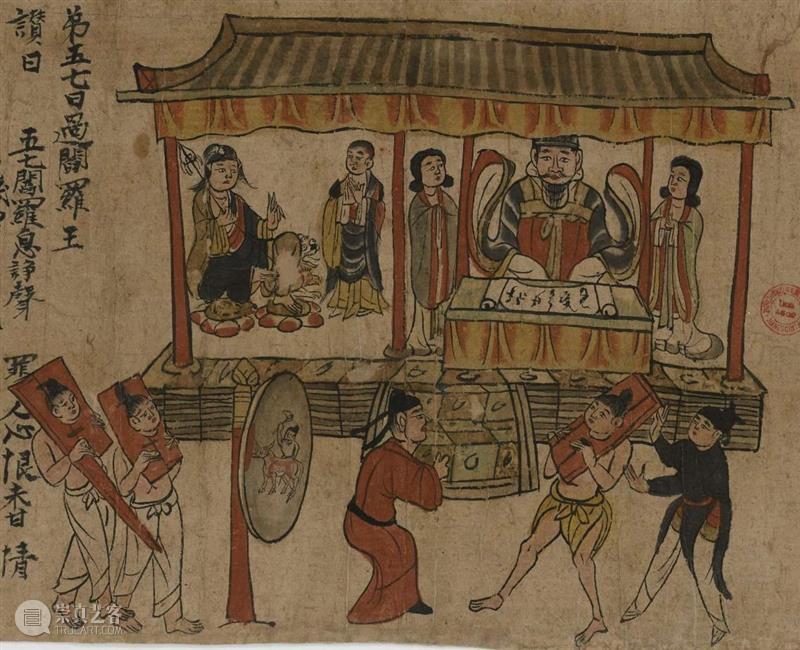 弟五七日過閻羅王
讃曰 五七閻羅息諍聲 罪人心恨未甘情
崇真艺客
TRUEART.COM